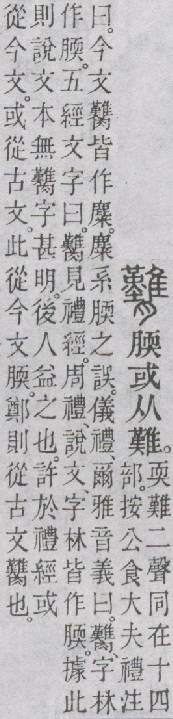 臡腝或从難。
耎難二聲同在十四
部。按公食大夫禮注
曰。今文臡皆作麋。麋系腝之誤。儀禮、爾雅音義曰。臡、字林
作腝。五經文字曰。臡見禮經。周禮、說文、字林皆作腝。據此
則說文本無臡字甚明。後人益之也。許於禮經或
從今文。或從古文。此從今文腝。鄭則從古文臡也。